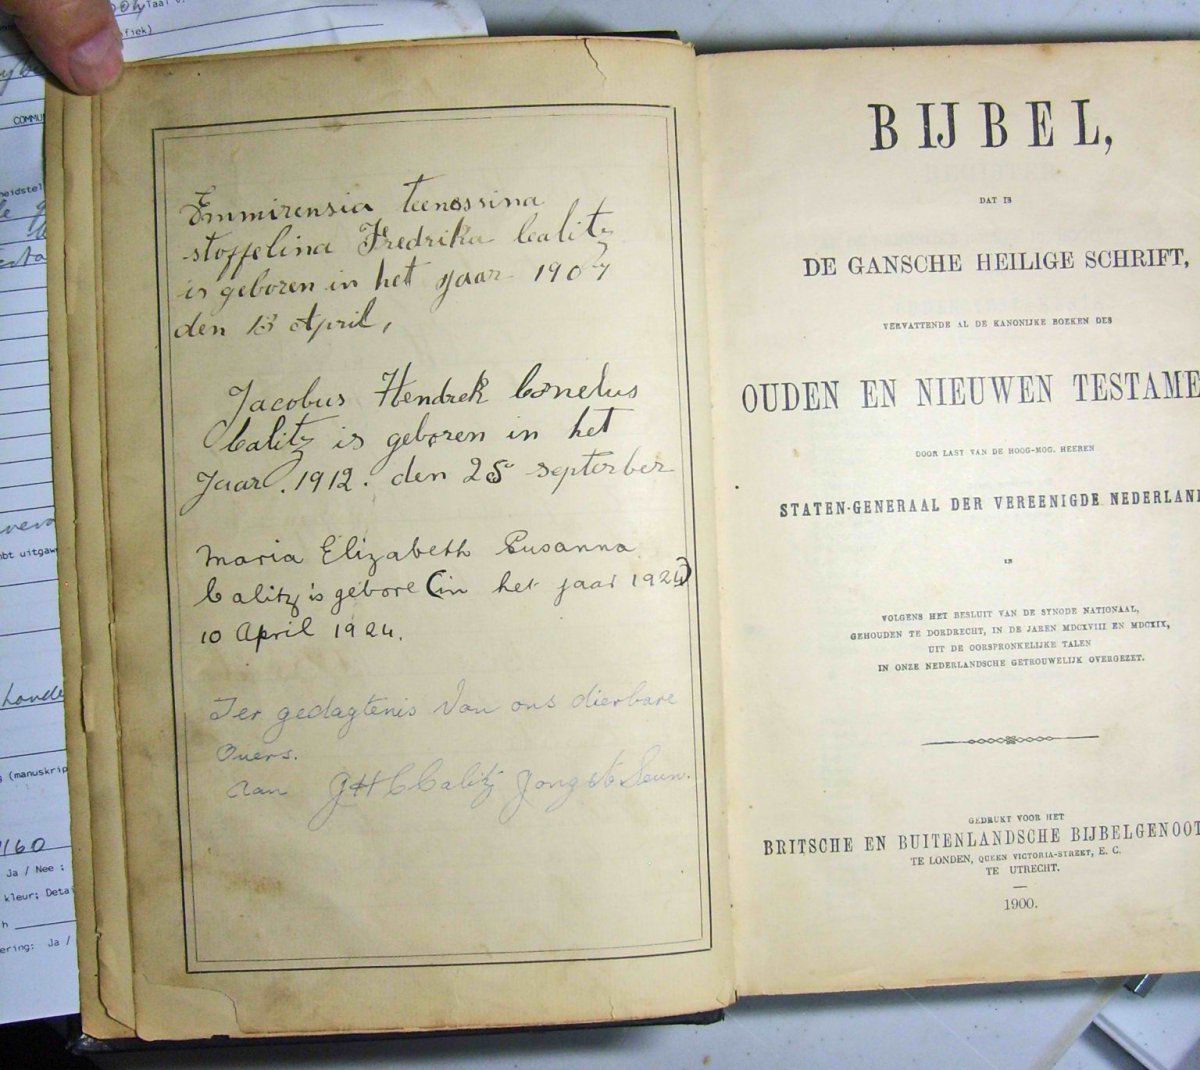 Emmirensia teenossina
stoffelina Fredrika Calitz
is geboren in het jaar 1907
den 13 April,
Jacobus Hendrek Cornelus
Calitz is geboren in het
Jaar. 1912. den 25 september
Maria Elizabeth Susanna
Calitz is gebore (in het jaar 1924)
10 April 1924.
Ter gedagtenis Van ons dierbare
Ouers.
Aan JHC Calitz Jongste Seun.
BIJBEL,
DAT IS
DE GANSCHE HEILIGE SCHRIFT,
VERVATTENDE AL DE KANONIJKE BOEKEN DES
OUDEN EN NIEUWEN TESTAME
DOOR LAST VAN DE HOOG-MOG. HEEREN
STATEN-GENERAAL DER VEREENIGDE NEDERLAN
EN
VOLGENS HET BESLUIT VAN DE SYNODE NATIONAAL,
GEHOUDEN TE DORDRECHT, IN DE JAREN MDCXVIII EN MDCXIX,
UIT DE OORSPRONKELIJKE TALEN
IN ONZE NEDERLANDSCHE GETROUWELIJK OVERGEZET.
GEDRUKT VOOR HET
BRITSCHE EN BUITENLANDSCHE BIJBELGENOOT
TE LONDEN, QUEEN VICTORIA-STREET, E. C.
TE UTRECHT.
1900.
COMMU
(manuskrip
1160
Ja / Nee :
kleur; Detai
ering: Ja /